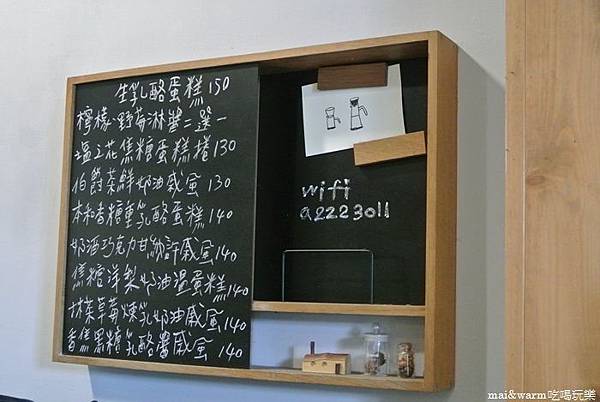 生乳酪蛋糕150
檸檬、野莓淋醬二選一
塩之花焦糖蛋糕捲130
伯爵茶鮮奶油戚風130
本和香糖重乳酪蛋糕140
奶酒巧克力甘納許戚風140
焦糖洋梨奶油溫蛋糕140
抹茶草莓煉乳奶油戚風140
香蕉黑糖乳酪醬戚風140
wifi
a2223011
mai&warm吃喝玩樂